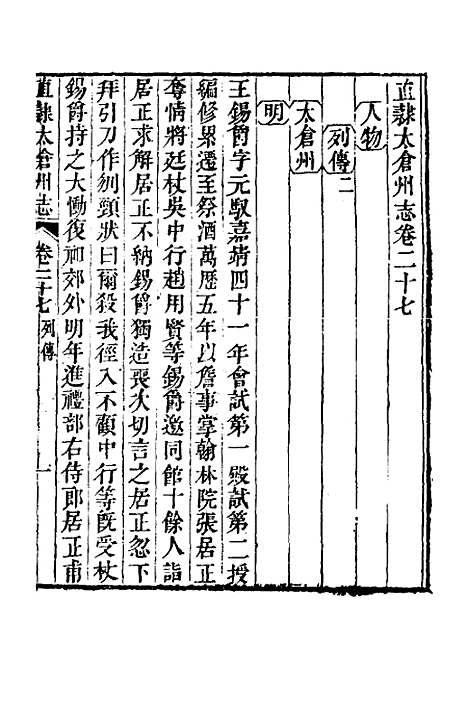 直隸太倉州志卷二十七
人物
列傳二
太倉州
明
王錫爵字元馭嘉靖四十一年會試第一殿試第二授
編修累遷至祭酒萬歷五年以詹事掌翰林院張居正
奪情將廷杖吳中行趙用賢等錫爵邀同館十餘人詣
居正求解居正不納錫爵獨造喪次切言之居正忽下
拜引刀作刎頸狀曰爾殺我徑入不顧中行等旣受杖
錫爵持之大慟復祖郊外明年進禮部右侍郎居正甫
直隸太倉州志 卷二十七 列傳 一